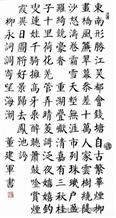 東南形勝江吳都會錢塘自古繁華煙柳
畫橋風簾翠幕參差十萬人家雲樹繞堤
沙怒濤卷霜雪天塹無涯市列珠璣戶盈
羅綺競豪奢重湖疊巘清嘉有三秋桂
子十里荷花羌管弄晴菱歌泛夜嬉嬉釣
叟蓮娃千騎擁高牙乘醉聽簫鼓吟賞煙
霞異日圖將好景歸去鳳池誇
柳永詞調寄望海潮 董建軍書